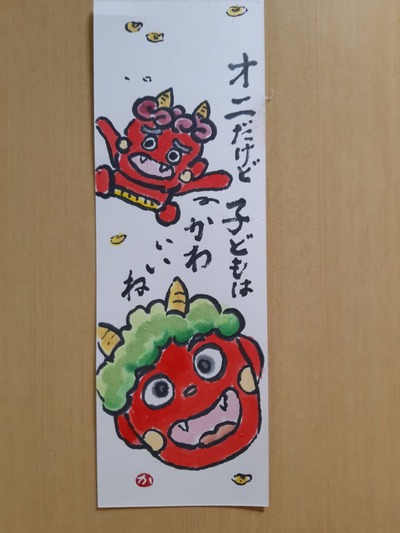 オニだけど
子どもは
かわ
いい
ね
か